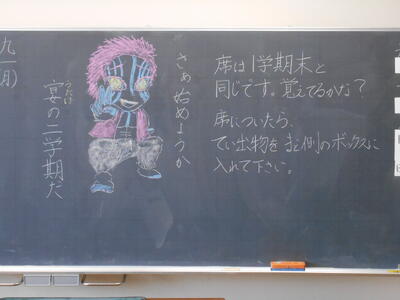 九
一
(月)
宴の二学期だ
うたげ
さぁ始めようか
席は1学期末と
同じです。覚えてるかな？
席についたら、
てい出物をまど側のボックスに
入れて下さい。